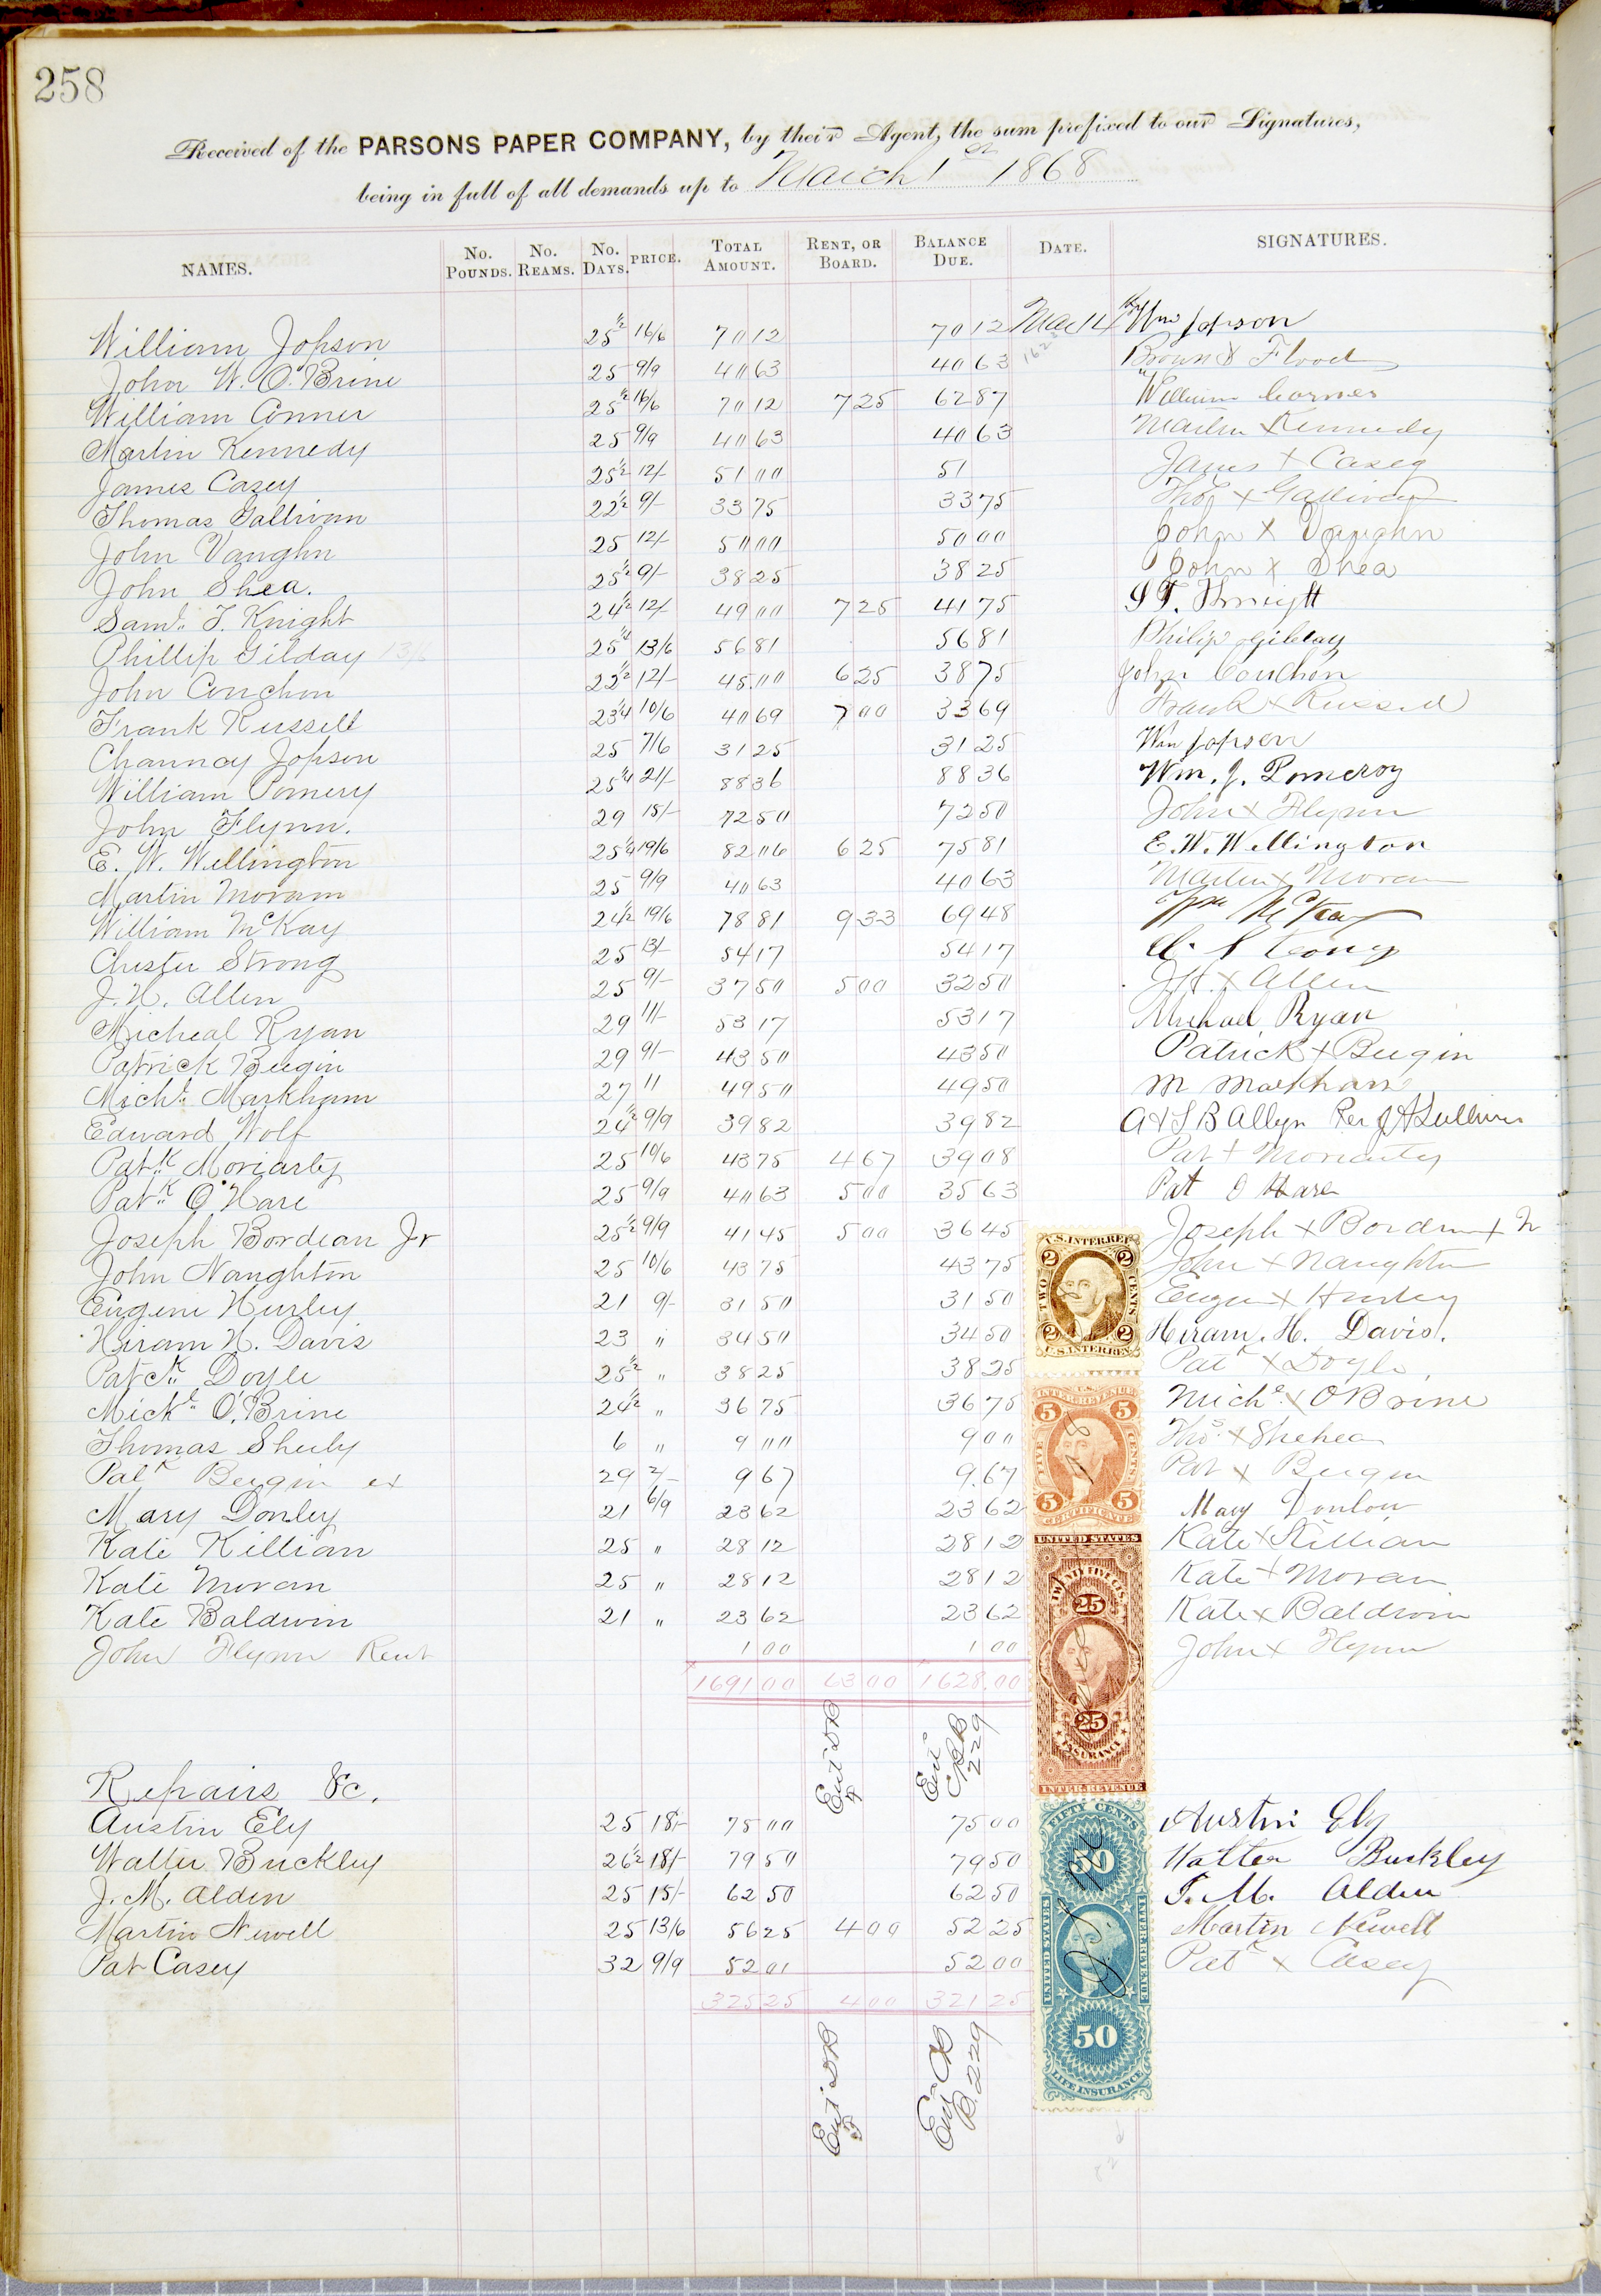 258
Received of the PARSONS PAPER COMPANY, by their Agent, the sum prefixed to our Signatures,
being in full of all demands up to March 1st 1868
NAMES. No. Pounds. No. Reams. No. Days. PRICE. Total Amount. Rent, or Board. Balance Due. Date. SIGNATURES.
William Jopson 25½ 16/6 70 12 70 12 Mar 14 Wm Jopson
John W. O'Brine 25 9/9 40 63 40 63 Brown & Flood
William Conner 25½ 16/6 70 12 7 25 62 87 William Corner
Martin Kennedy 25 9/9 40 63 40 63 Martin X Kennedy
James Casey 25½ 12/- 51 00 51 James X Casey
Thomas Gallivan 22½ 9/- 33 75 33 75 Thos X Gallivan
John Vaughn 25 12/- 50 00 50 00 John X Vaughn
John Shea. 25½ 9/- 38 25 38 25 John X Shea
Saml. T. Knight 24½ 12/- 49 00 7 25 41 75 S T. Knight
Phillip Gilday 13/6 25¼ 13/6 56 81 56 81 Philip Gilday
John Couchon 22½ 12/- 45 00 6 25 38 75 John Couchon
Frank Russell 23¼ 10/6 40 69 7 00 33 69 Frank X Russell
Chauncy Jopson 25 7/6 31 25 31 25 Wm Jopson
William Pomery 25¼ 21/- 88 36 88 36 Wm. J. Pomeroy
John Flynn. 29 15/- 72 50 72 50 John X Flynn
E. W. Wellington 25¼ 19/6 82 06 6 25 75 81 E. W. Wellington
Martin Moram 25 9/9 40 63 40 63 Martin X Moran
William McKay 24½ 19/6 78 81 9 33 69 48 Wm McKay
Chester Strong 25 13/- 54 17 54 17 C. Strong
J. H. Allen 25 9/- 37 50 5 00 32 50 J. H. X Allen
Micheal Ryan 29 11/- 53 17 53 17 Michael Ryan
Patrick Bergin 29 9/- 43 50 43 50 Patrick X Bergin
Michl. Markham 27 11 49 50 49 50 M Markham
Edward Wolf 24½ 9/9 39 82 39 82 A & S B Allyn Per J A Sullivan
Patk. Moriarty 25 10/6 43 75 4 67 39 08 Pat X Moriarty
Patk. O'Hare 25 9/9 40 63 5 00 35 63 Pat O Hare
Joseph Bordean Jr 25½ 9/9 41 45 5 00 36 45 Joseph X Bordean
John Naughton 25 10/6 43 75 43 75 John X Naughton
Eugene Hurley 21 9/- 31 50 31 50 Eugene X Hurley
Hiram H. Davis 23 " 34 50 34 50 Hiram. H. Davis.
Patck. Doyle 25½ " 38 25 38 25 Patk X Doyle
Mickl. O'Brine 24½ " 36 75 36 75 Michl. X O Brine
Thomas Sheehy 6 " 9 00 9 00 Thos. X Shehea
Patk Bergin ex 29 2/- 9 67 9.67 Pat X Bergin
Mary Donley 21 6/9 23 62 23 62 Mary Donlon
Kate Killian 25 " 28 12 28 12 Kate X Killian
Kate Moran 25 " 28 12 28 12 Kate X Moran
Kate Baldwin 21 " 23 62 23 62 Kate X Baldwin
John Flynn Rent 1 00 1 00 John X Flynn
1691 00 63 00 1628.00
Ent DB
Ent CSB 229
Repairs &c.
Austin Ely 25 18/- 75 00 75 00 Austin Ely
Walter Buckley 26½ 18/- 79 50 79 50 Walter Buckley
J. M. Alden 25 15/- 62 50 62 50 J. M. Alden
Martin Newell 25 13/6 56 25 4 00 52 25 Martin Newell
Pat Casey 32 9/9 52 01 52 00 Patk X Casey
325 25 4 00 321 25
Ent DB
Ent CB P. 229
U.S. INTER. REV.
2 2
TWO CENTS
2 2
U.S. INTER. REV.
U.S.
INTER. REVENUE
5 5
FIVE CENTS
5 5
CERTIFICATE
UNITED STATES
TWENTY FIVE CTS.
25
25
INSURANCE
INTER. REVENUE
FIFTY CENTS
50
UNITED STATES INTER. REVENUE
50
LIFE INSURANCE